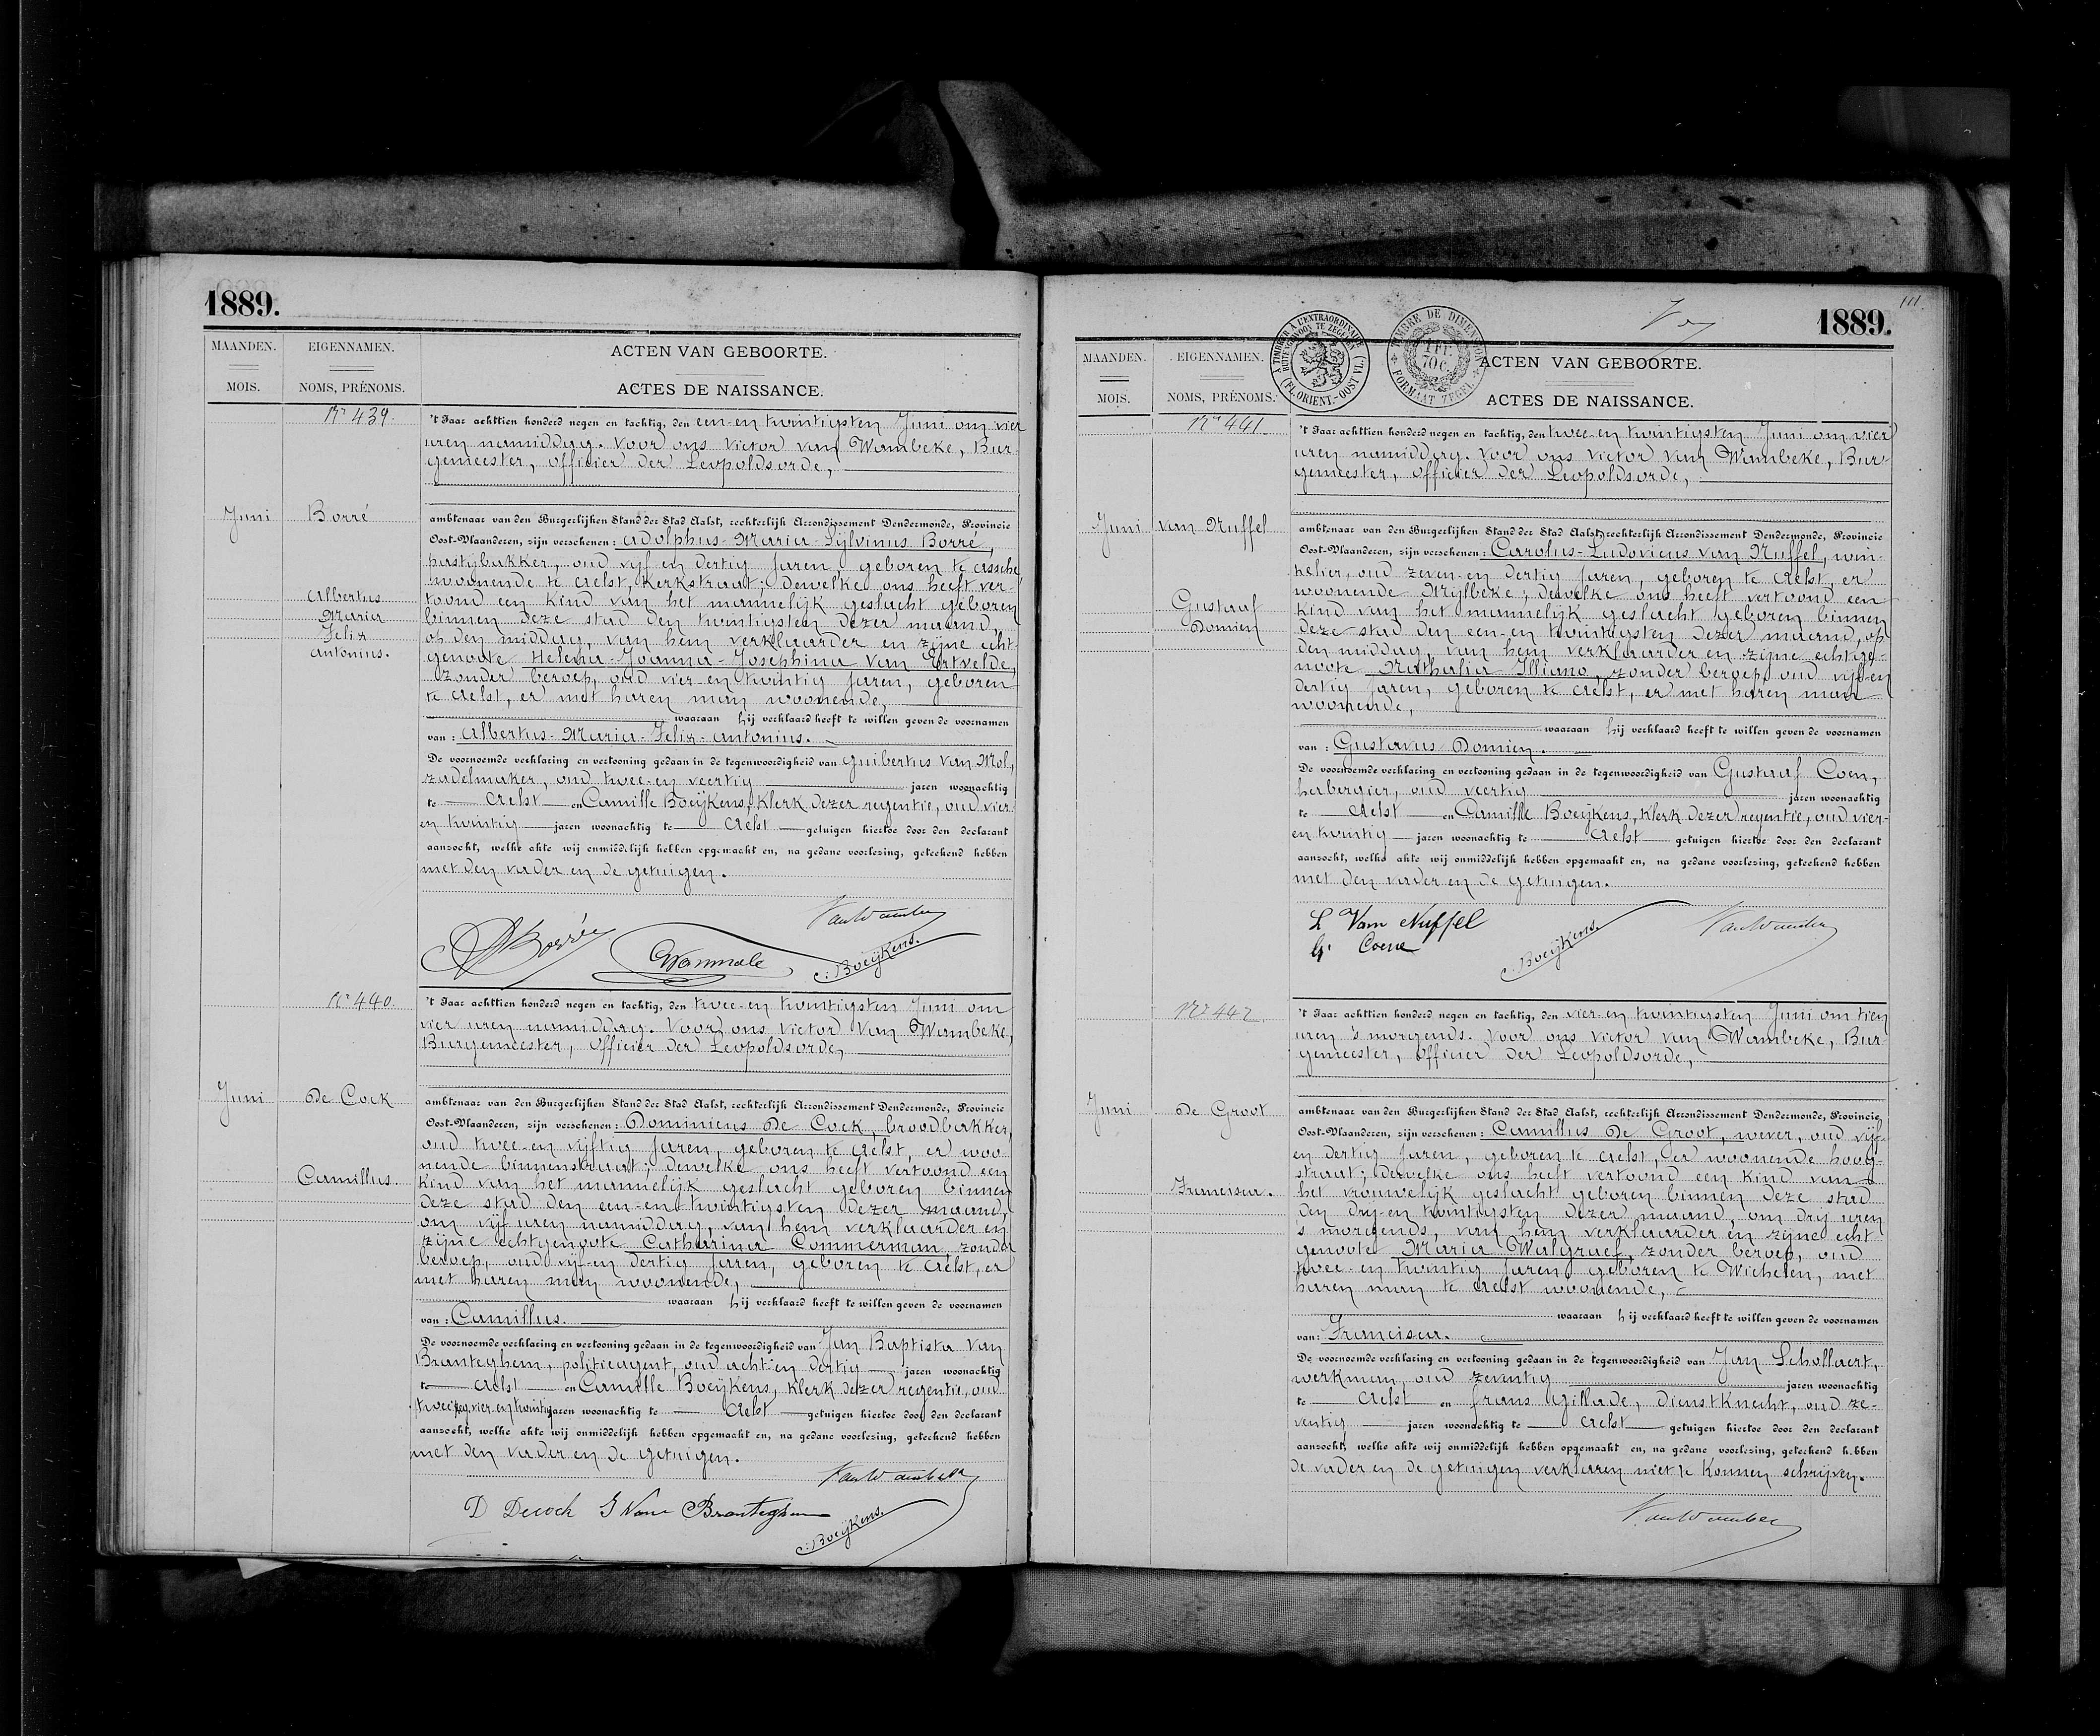 1889.
MAANDEN.
MOIS.
EIGENNAMEN.
NOMS, PRÉNOMS.
ACTEN VAN GEBOORTE.
ACTES DE NAISSANCE.
Nr 439.
Juni
Borré
Albertus
Maria
Felix
Antonius.
't Jaar achttien honderd negen en tachtig, den een-en twintigsten Juni om vier
uren namiddag. Voor ons Victor van Wambeke, Bur-
gemeester, officier der Leopoldsorde,
ambtenaar van den Burgerlijken Stand der Stad Aalst, rechterlijk Arrondissement Dendermonde, Provincie
Oost-Vlaanderen, zijn verschenen: Adolphus-Maria-Sylvinus Borré,
pasteijbakker, oud vijf en dertig jaren, geboren te Assche
woonende te Aelst, Kerkstraat; dewelke ons heeft ver-
toond een kind van het mannelijk geslacht geboren
binnen deze stad den twintigsten dezer maand,
op den middag, van hem verklaarder en zijne echt-
genoote Helena-Joanna-Josephina Van Ertvelde,
zonder beroep, oud vier-en twintig jaren, geboren
te Aelst, er met haren man woonende,
waaraan hij verklaard heeft te willen geven de voornamen
van: Albertus-Maria-Felix-Antonius.
De voornoemde verklaring en vertooning gedaan in de tegenwoordigheid van Guibertus van Mol,
zadelmaker, oud twee-en veertig jaren woonachtig
te Aelst en Camille Boeÿkens, klerk dezer regentie, oud vier-
en twintig jaren woonachtig te Aelst getuigen hiertoe door den declarant
aanzocht, welke akte wij onmiddelijk hebben opgemaakt en, na gedane voorlezing, geteekend hebben
met den vader en de getuigen.
VanWambeke
A Borré
C. Boeÿkens.
Nr 440.
Juni
De Cock
Camillus.
't Jaar achttien honderd negen en tachtig, den twee-en twintigsten Juni om
vier uren namiddag. Voor ons Victor Van Wambeke,
Burgemeester, officier der Leopoldsorde,
ambtenaar van den Burgerlijken Stand der Stad Aalst, rechterlijk Arrondissement Dendermonde, Provincie
Oost-Vlaanderen, zijn verschenen: Dominicus De Cock, broodbakker,
oud twee-en vijftig jaren, geboren te Aelst, er woo-
nende binnenstraat; dewelke ons heeft vertoond een
kind van het mannelijk geslacht geboren binnen
deze stad den een-en twintigsten dezer maand,
om vijf uren namiddag, van hem verklaarder en
zijne echtgenoote Catharina Commerman, zonder
beroep, oud vijf-en dertig jaren, geboren te Aelst, er
met haren man woonende,
waaraan hij verklaard heeft te willen geven de voornamen
van: Camillus.
De voornoemde verklaring en vertooning gedaan in de tegenwoordigheid van Jan Baptista Van
Branteghem, politieagent, oud acht en dertig jaren woonachtig
te Aelst en Camille Boeÿkens, klerk dezer regentie, oud
vier-en twintig jaren woonachtig te Aelst getuigen hiertoe door den declarant
aanzocht, welke akte wij onmiddelijk hebben opgemaakt en, na gedane voorlezing, geteekend hebben
met den vader en de getuigen.
VanWambeke
D Decock J Van Branteghem
C. Boeÿkens.
111.
1889.
À TIMBRER À L'EXTRAORDINAIRE
BUITENGEWOON TE ZEGELEN
(FL. ORIENT.-OOST VL.)
TIMBRE DE DIMENSION
1 FR. 70 C.
FORMAAT ZEGEL
MAANDEN.
MOIS.
EIGENNAMEN.
NOMS, PRÉNOMS.
ACTEN VAN GEBOORTE.
ACTES DE NAISSANCE.
Nr 441.
Juni
van Nuffel
Gustaaf
Domien
't Jaar achttien honderd negen en tachtig, den twee-en twintigsten Juni om vier
uren namiddag. Voor ons Victor van Wambeke, Bur-
gemeester, officier der Leopoldsorde,
ambtenaar van den Burgerlijken Stand der Stad Aalst, rechterlijk Arrondissement Dendermonde, Provincie
Oost-Vlaanderen, zijn verschenen: Carolus-Ludovicus van Nuffel, win-
kelier, oud zeven-en dertig jaren, geboren te Aelst, er
woonende Mijlbeke; dewelke ons heeft vertoond een
kind van het mannelijk geslacht geboren binnen
deze stad den een-en twintigsten dezer maand, op
den middag, van hem verklaarder en zijne echtge-
noote Nathalia Illiano, zonder beroep, oud vijf-en
dertig jaren, geboren te Aelst, er met haren man
woonende,
waaraan hij verklaard heeft te willen geven de voornamen
van: Gustavus Domien.
De voornoemde verklaring en vertooning gedaan in de tegenwoordigheid van Gustaaf Coen,
herbergier, oud veertig jaren woonachtig
te Aelst en Camille Boeÿkens, klerk dezer regentie, oud vier-
en twintig jaren woonachtig te Aelst getuigen hiertoe door den declarant
aanzocht, welke akte wij onmiddelijk hebben opgemaakt en, na gedane voorlezing, geteekend hebben
met den vader en de getuigen.
L Van Nuffel
G. Coene
C. Boeÿkens.
VanWambeke
Nr 442
Juni
De Groot
Francisca.
't Jaar achttien honderd negen en tachtig, den vier-en twintigsten Juni om tien
uren 's morgends. Voor ons Victor van Wambeke, Bur-
gemeester, officier der Leopoldsorde,
ambtenaar van den Burgerlijken Stand der Stad Aalst, rechterlijk Arrondissement Dendermonde, Provincie
Oost-Vlaanderen, zijn verschenen: Camillus De Groot, wever, oud vijf-
en dertig jaren, geboren te Aelst, er woonende hoog-
straat; dewelke ons heeft vertoond een kind van
het vrouwelijk geslacht geboren binnen deze stad
den dry-en twintigsten dezer maand, om drij uren
's morgends, van hem verklaarder en zijne echt-
genoote Maria Walgraef, zonder beroep, oud
twee-en twintig jaren geboren te Wichelen, met
haren man te Aelst woonende,
waaraan hij verklaard heeft te willen geven de voornamen
van: Francisca.
De voornoemde verklaring en vertooning gedaan in de tegenwoordigheid van Jan Schollaert,
werkman, oud zeventig jaren woonachtig
te Aelst en frans Gillade, dienstknecht, oud ze-
ventig jaren woonachtig te Aelst getuigen hiertoe door den declarant
aanzocht, welke akte wij onmiddelijk hebben opgemaakt en, na gedane voorlezing, geteekend hebben
de vader en de getuigen verklaren niet te konnen schrijven.
VanWambeke